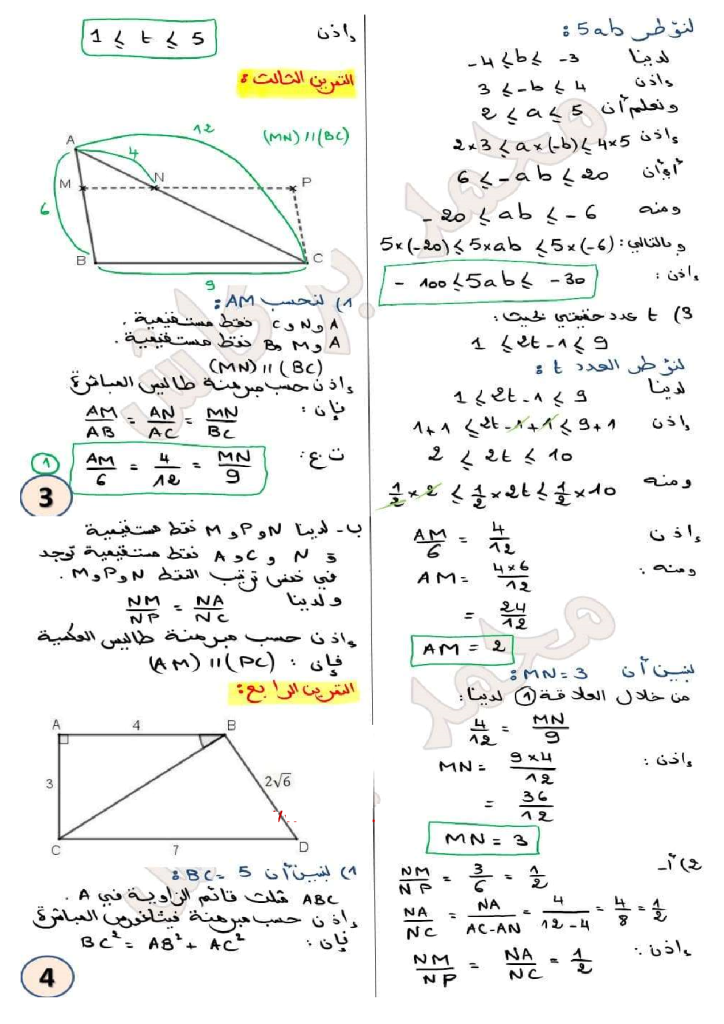 لنؤطر 5ab :
لدينا -4 ≤ b ≤ -3
إذن 3 ≤ -b ≤ 4
ونعلم أن 2 ≤ a ≤ 5
إذن 2×3 ≤ a×(-b) ≤ 4×5
أي أن 6 ≤ -ab ≤ 20
ومنه -20 ≤ ab ≤ -6
وبالتالي: 5×(-20) ≤ 5×ab ≤ 5×(-6)
إذن: -100 ≤ 5ab ≤ -30
3) t عدد حقيقي بحيث:
1 ≤ 2t-1 ≤ 9
لنؤطر العدد t :
لدينا 1 ≤ 2t-1 ≤ 9
إذن 1+1 ≤ 2t-1+1 ≤ 9+1
2 ≤ 2t ≤ 10
ومنه 1/2×2 ≤ 1/2×2t ≤ 1/2×10
إذن 1 ≤ t ≤ 5
التمرين الثالث:
12
(MN) // (BC)
A
4
M N P
6
B C
9
1) لنحسب AM :
A و N و C نقط مستقيمية.
A و M و B نقط مستقيمية.
(MN) // (BC)
إذن حسب مبرهنة طاليس المباشرة
فإن: AM/AB = AN/AC = MN/BC
ت ع: AM/6 = 4/12 = MN/9 ①
3
إذن AM/6 = 4/12
ومنه: AM = 4×6/12
= 24/12
AM = 2
لنبين أن MN=3 :
من خلال العلاقة ① لدينا:
4/12 = MN/9
إذن: MN = 9×4/12
= 36/12
MN = 3
2) أ-
NM/NP = 3/6 = 1/2
NA/NC = NA/AC-AN = 4/12-4 = 4/8 = 1/2
إذن: NM/NP = NA/NC = 1/2
ب- لدينا N و P و M نقط مستقيمية
و N و C و A نقط مستقيمية توجد
في نفس ترتيب النقط N و P و M.
ولدينا NM/NP = NA/NC
إذن حسب مبرهنة طاليس العكسية
فإن: (AM) // (PC)
التمرين الرابع:
A 4 B
3
2√6
C 7 D
1) لنبين أن BC = 5 :
ABC مثلث قائم الزاوية في A.
إذن حسب مبرهنة فيثاغورس المباشرة
فإن: BC² = AB² + AC²
4
محمد
محمد